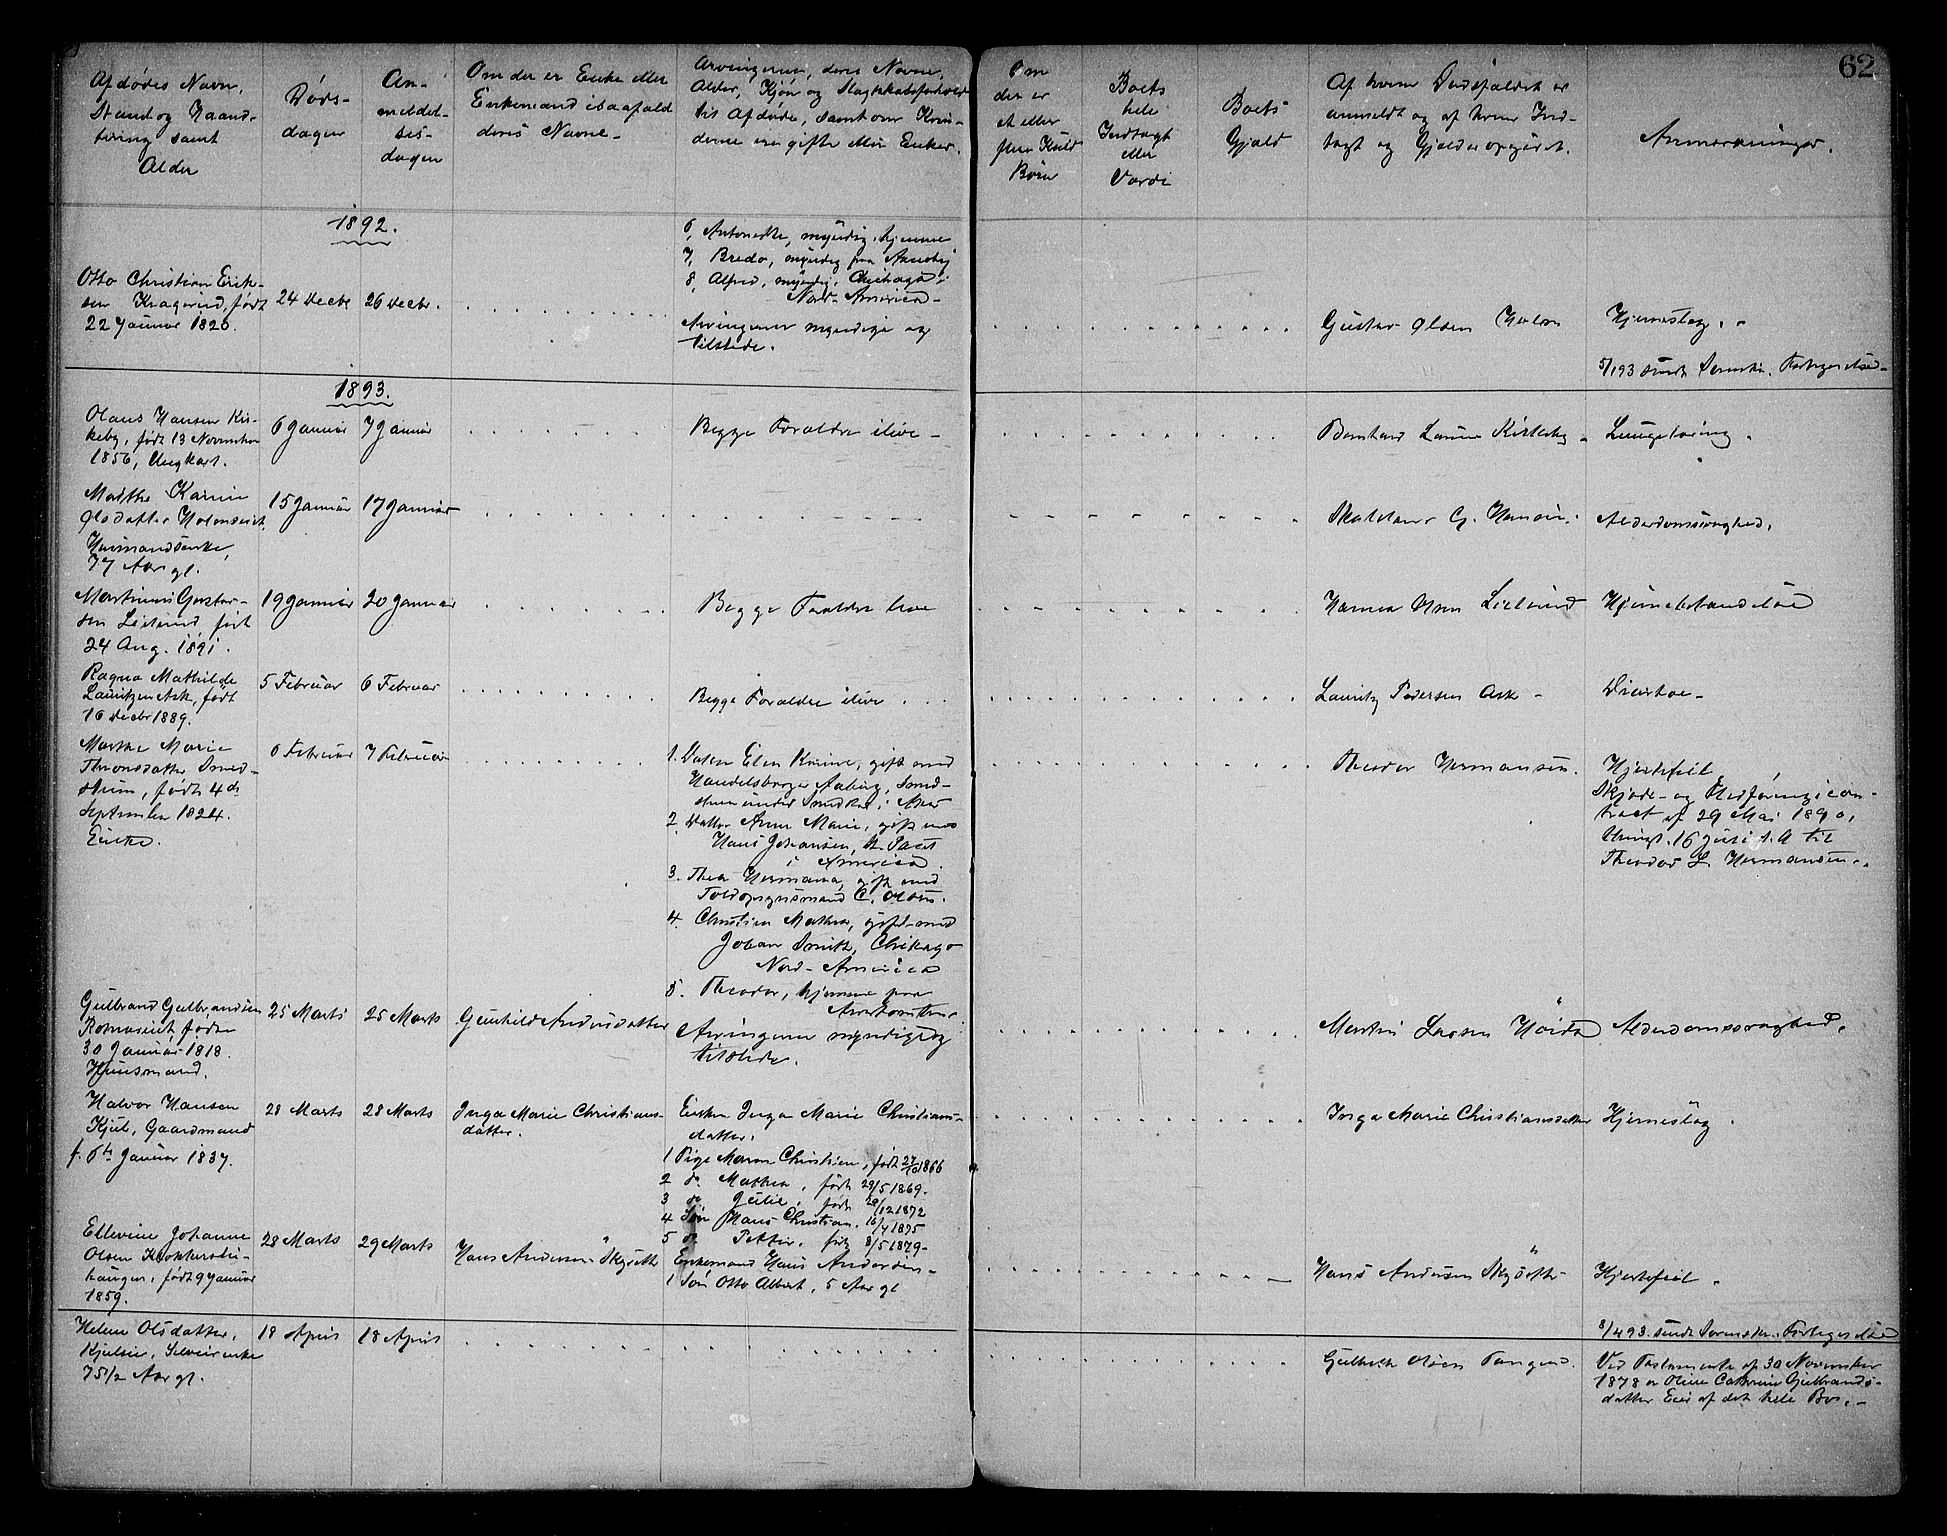 62
Afdødes Navn,
Stand og Haand-
tering samt
Alder
Døds-
dagen
An-
meldel-
ses-
dagen
Om der er Enke eller
Enkemand i saafald
deres Navne -
Arvingerne, deres Navne,
Alder, Kjøn og Slagtskabsforhold
til Afdøde, samt om Kvin-
derne ere gifte eller Enker.
Om
der er
et eller
flere Kuld
Børn
Boets
hele
Indtægt
eller
Værdi
Boets
Gjæld
Af hvem Dødsfaldet er
anmeldt og af hvem Ind-
tægt og Gjæld er opgivet.
Anmærkninger.
1892.
6, Antonette, myndig, hjemme
7, Bredo, myndig paa
8, Alfred, myndig, Chicago i
Nord-America -
Otto Christian Erik-
sen født
22 Januar 1826.
24 Decbr 26 Decbr.
Arvingerne myndige og
tilstede.
Gustav Olsen Holm
Hjerneslag. -
5/1 93 sendt Sorenskr. Fortegnelse -
1893.
Olaus Hansen Kir-
keby, født 13 November
1856, Ungkarl.
6 Januar 7 Januar
Begge Forældre ilive -
Bernhard Kirkeby - Lungetæring.
Marthe Karine
Olsdatter
Huusmandsenke,
77 Aar gl.
15 Januar 17 Januar
G. Hansen. Alderdomssvaghed.
Martinus Gustav-
sen født
24 Aug. 1891.
19 Januar 20 Januar
Begge Forældre leve
Hjernebetændelse
Ragna Mathilde
Lauritzen Ask, født
16 Decbr 1889.
5 Februar 6 Februar
Begge Forældre ilive
Lauritz Pedersen Ask - Diarrhoe -
Marthe Marie
Thronsdatter Smed-
stuen, født 4de
September 1824.
Enke.
6 Februar 7 Februar
1. Datter Elen Karine, gift med
Handelsborger Aaberg, Smed-
stuen under
2. Datter Anne Marie, gift med
Hans Johansen, St. Paul
i America.
3. Thea Hermana, gift med
Toldopsynsmand C. Olsen.
4. Christine Mathea, gift med
Johan Smith, Chikago
Nord-America
5. Theodor, hjemme paa
Arvingerne myndige og
tilstede.
Theodor Hermansen.
Hjertefeil
Skjøde- og Flodføringscon-
tract af 29 Mai 1890,
thingl. 16 Juli s.A. til
Theodor L. Hermansen.
Gulbrand Gulbrandsen
Romseiet født
30 Januar 1818.
Huusmand.
25 Marts 25 Marts Gunhild Andersdatter
Martin Larsen Alderdomssvaghed.
Halvor Hansen
Kjul, Gaardmand
f. 6te Januar 1837.
28 Marts 28 Marts Inga Marie Christians-
datter.
Enken Inga Marie Christians-
datter.
1 Pige Maren Christine, født 27/10 1866
2 do. Mathea, født 29/5 1869.
3 do Julie, født 20/12 1872
4 Søn Hans Christian, 16/4 1875
5 do Petter, født 8/5 1879 -
Inga Marie Christiansdatter Hjerneslag.
Ellevine Johanne
Olsen
født 9 Januar
1859.
28 Marts 29 Marts Hans Andersen
Enkemand Hans Andersen -
1 Søn Otto Albert, 5 Aar gl
Hans Andersen Hjertefeil.
8/4 93. sendt Sorenskr. Fortegnelse
Helene Olsdatter,
Kjelsen,
75 1/2 Aar gl.
18 April 18 April
Gulbrand Olsen
Ved Testamente af 30 November
1878 er Oline Cathrine Gulbrands-
datter Eier af det hele Bo. -